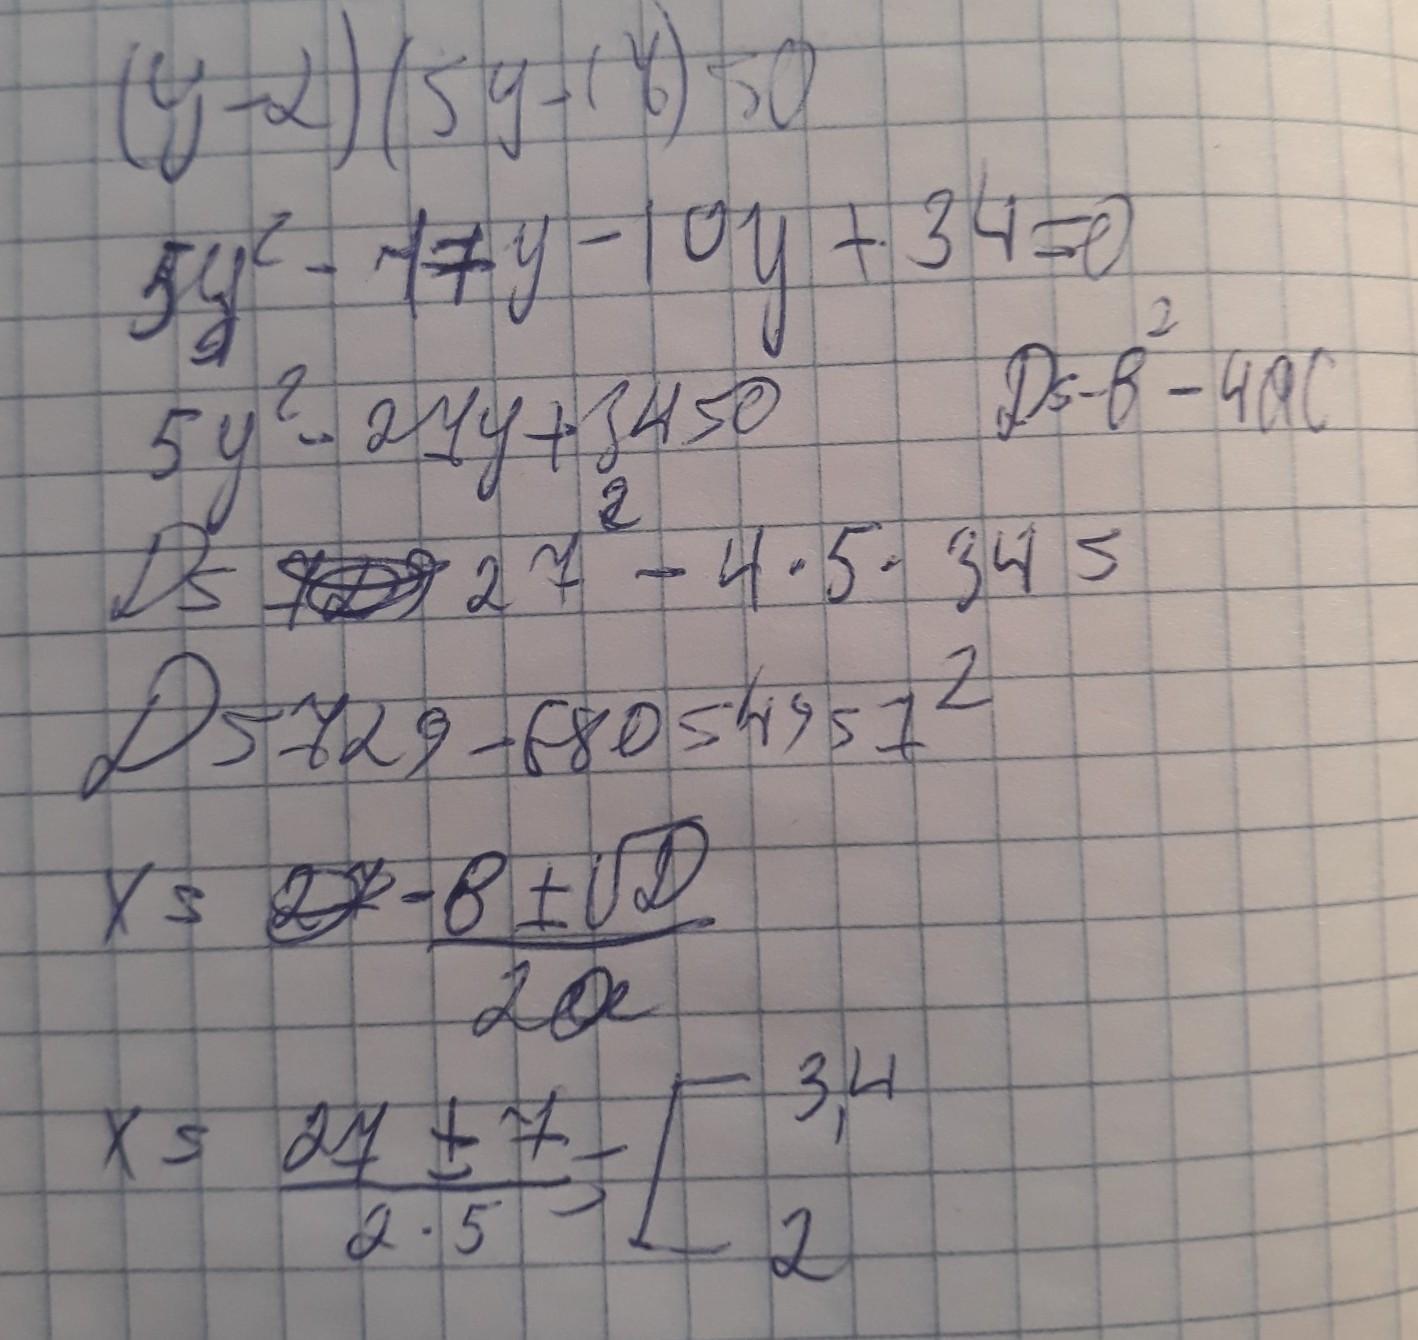 (y-2)(5y-17)=0
5y² - 17y - 10y + 34 = 0
5y² - 27y + 34 = 0
D = b² - 4ac
D = 27² - 4·5·34 =
D = 729 - 680 = 49 = 7²
x = -b ± √D / 2a
x = 27 ± 7 / 2·5 = [ 3,4
2